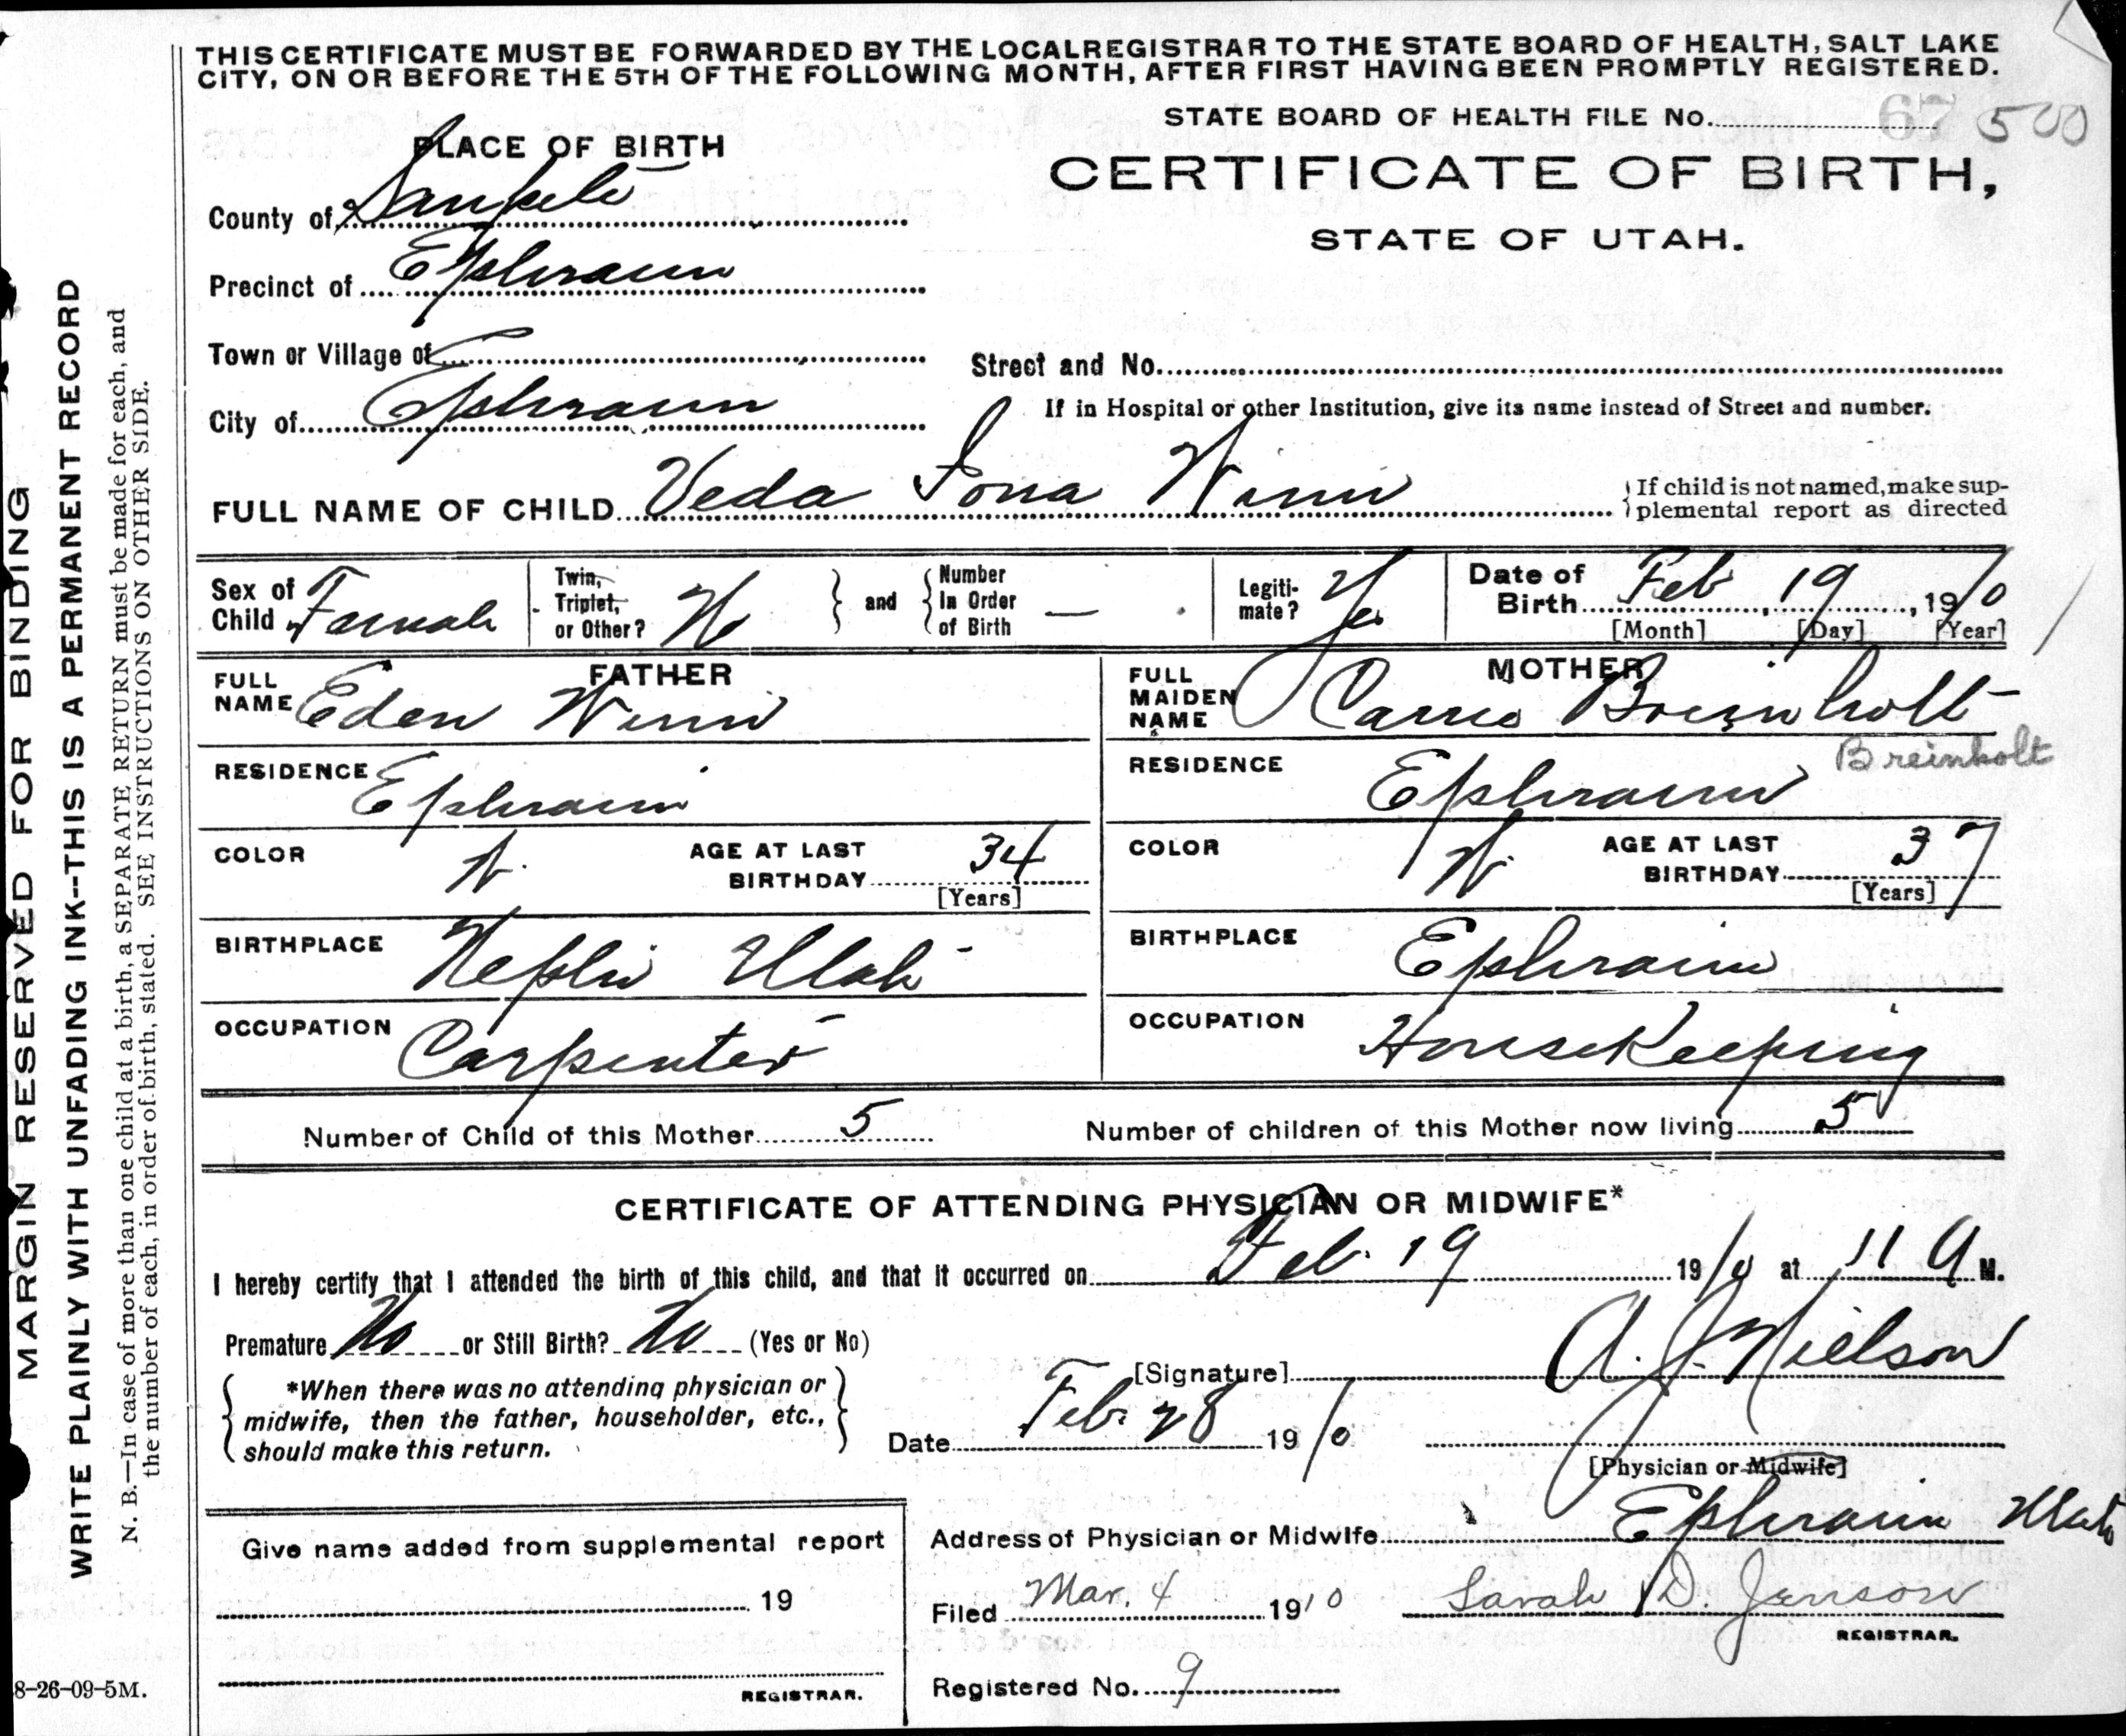 THIS CERTIFICATE MUST BE FORWARDED BY THE LOCAL REGISTRAR TO THE STATE BOARD OF HEALTH, SALT LAKE
CITY, ON OR BEFORE THE 5TH OF THE FOLLOWING MONTH, AFTER FIRST HAVING BEEN PROMPTLY REGISTERED.
STATE BOARD OF HEALTH FILE No. 67 500
PLACE OF BIRTH
CERTIFICATE OF BIRTH,
STATE OF UTAH.
County of Sanpete
Precinct of Ephraim
Town or Village of
Street and No.
City of Ephraim
If in Hospital or other Institution, give its name instead of Street and number.
FULL NAME OF CHILD Veda Iona Winn
If child is not named, make sup-
plemental report as directed
Sex of Child Female
Twin, Triplet, or Other? No
and
Number In Order of Birth —
Legiti-mate? Yes
Date of Birth Feb, 19, 1910
[Month] [Day] [Year]
FATHER
FULL NAME Eden Winn
RESIDENCE Ephraim
COLOR W.
AGE AT LAST BIRTHDAY 34
[Years]
BIRTHPLACE Nephi Utah
OCCUPATION Carpenter
MOTHER
FULL MAIDEN NAME Carrie Breinholt
Breinholt
RESIDENCE Ephraim
COLOR W
AGE AT LAST BIRTHDAY 37
[Years]
BIRTHPLACE Ephraim
OCCUPATION HouseKeeping
Number of Child of this Mother 5
Number of children of this Mother now living 5
CERTIFICATE OF ATTENDING PHYSICIAN OR MIDWIFE*
I hereby certify that I attended the birth of this child, and that it occurred on Feb. 19 1910 at 11 A M.
Premature No or Still Birth? No (Yes or No)
[Signature] A. J. Nielson
*When there was no attending physician or
midwife, then the father, householder, etc.,
should make this return.
Date Feb. 28 1910
[Physician or Midwife]
Address of Physician or Midwife Ephraim Utah
Give name added from supplemental report
19
REGISTRAR.
Filed Mar. 4 1910 Sarah D. Jenson
REGISTRAR.
Registered No. 9
8-26-09-5M.
MARGIN RESERVED FOR BINDING
WRITE PLAINLY WITH UNFADING INK--THIS IS A PERMANENT RECORD
N. B.—In case of more than one child at a birth, a SEPARATE RETURN must be made for each, and
the number of each, in order of birth, stated. SEE INSTRUCTIONS ON OTHER SIDE.